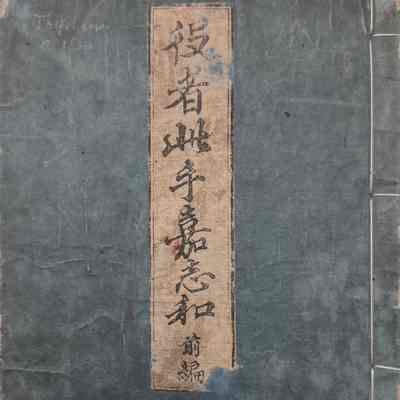 役者此手嘉志和
前編